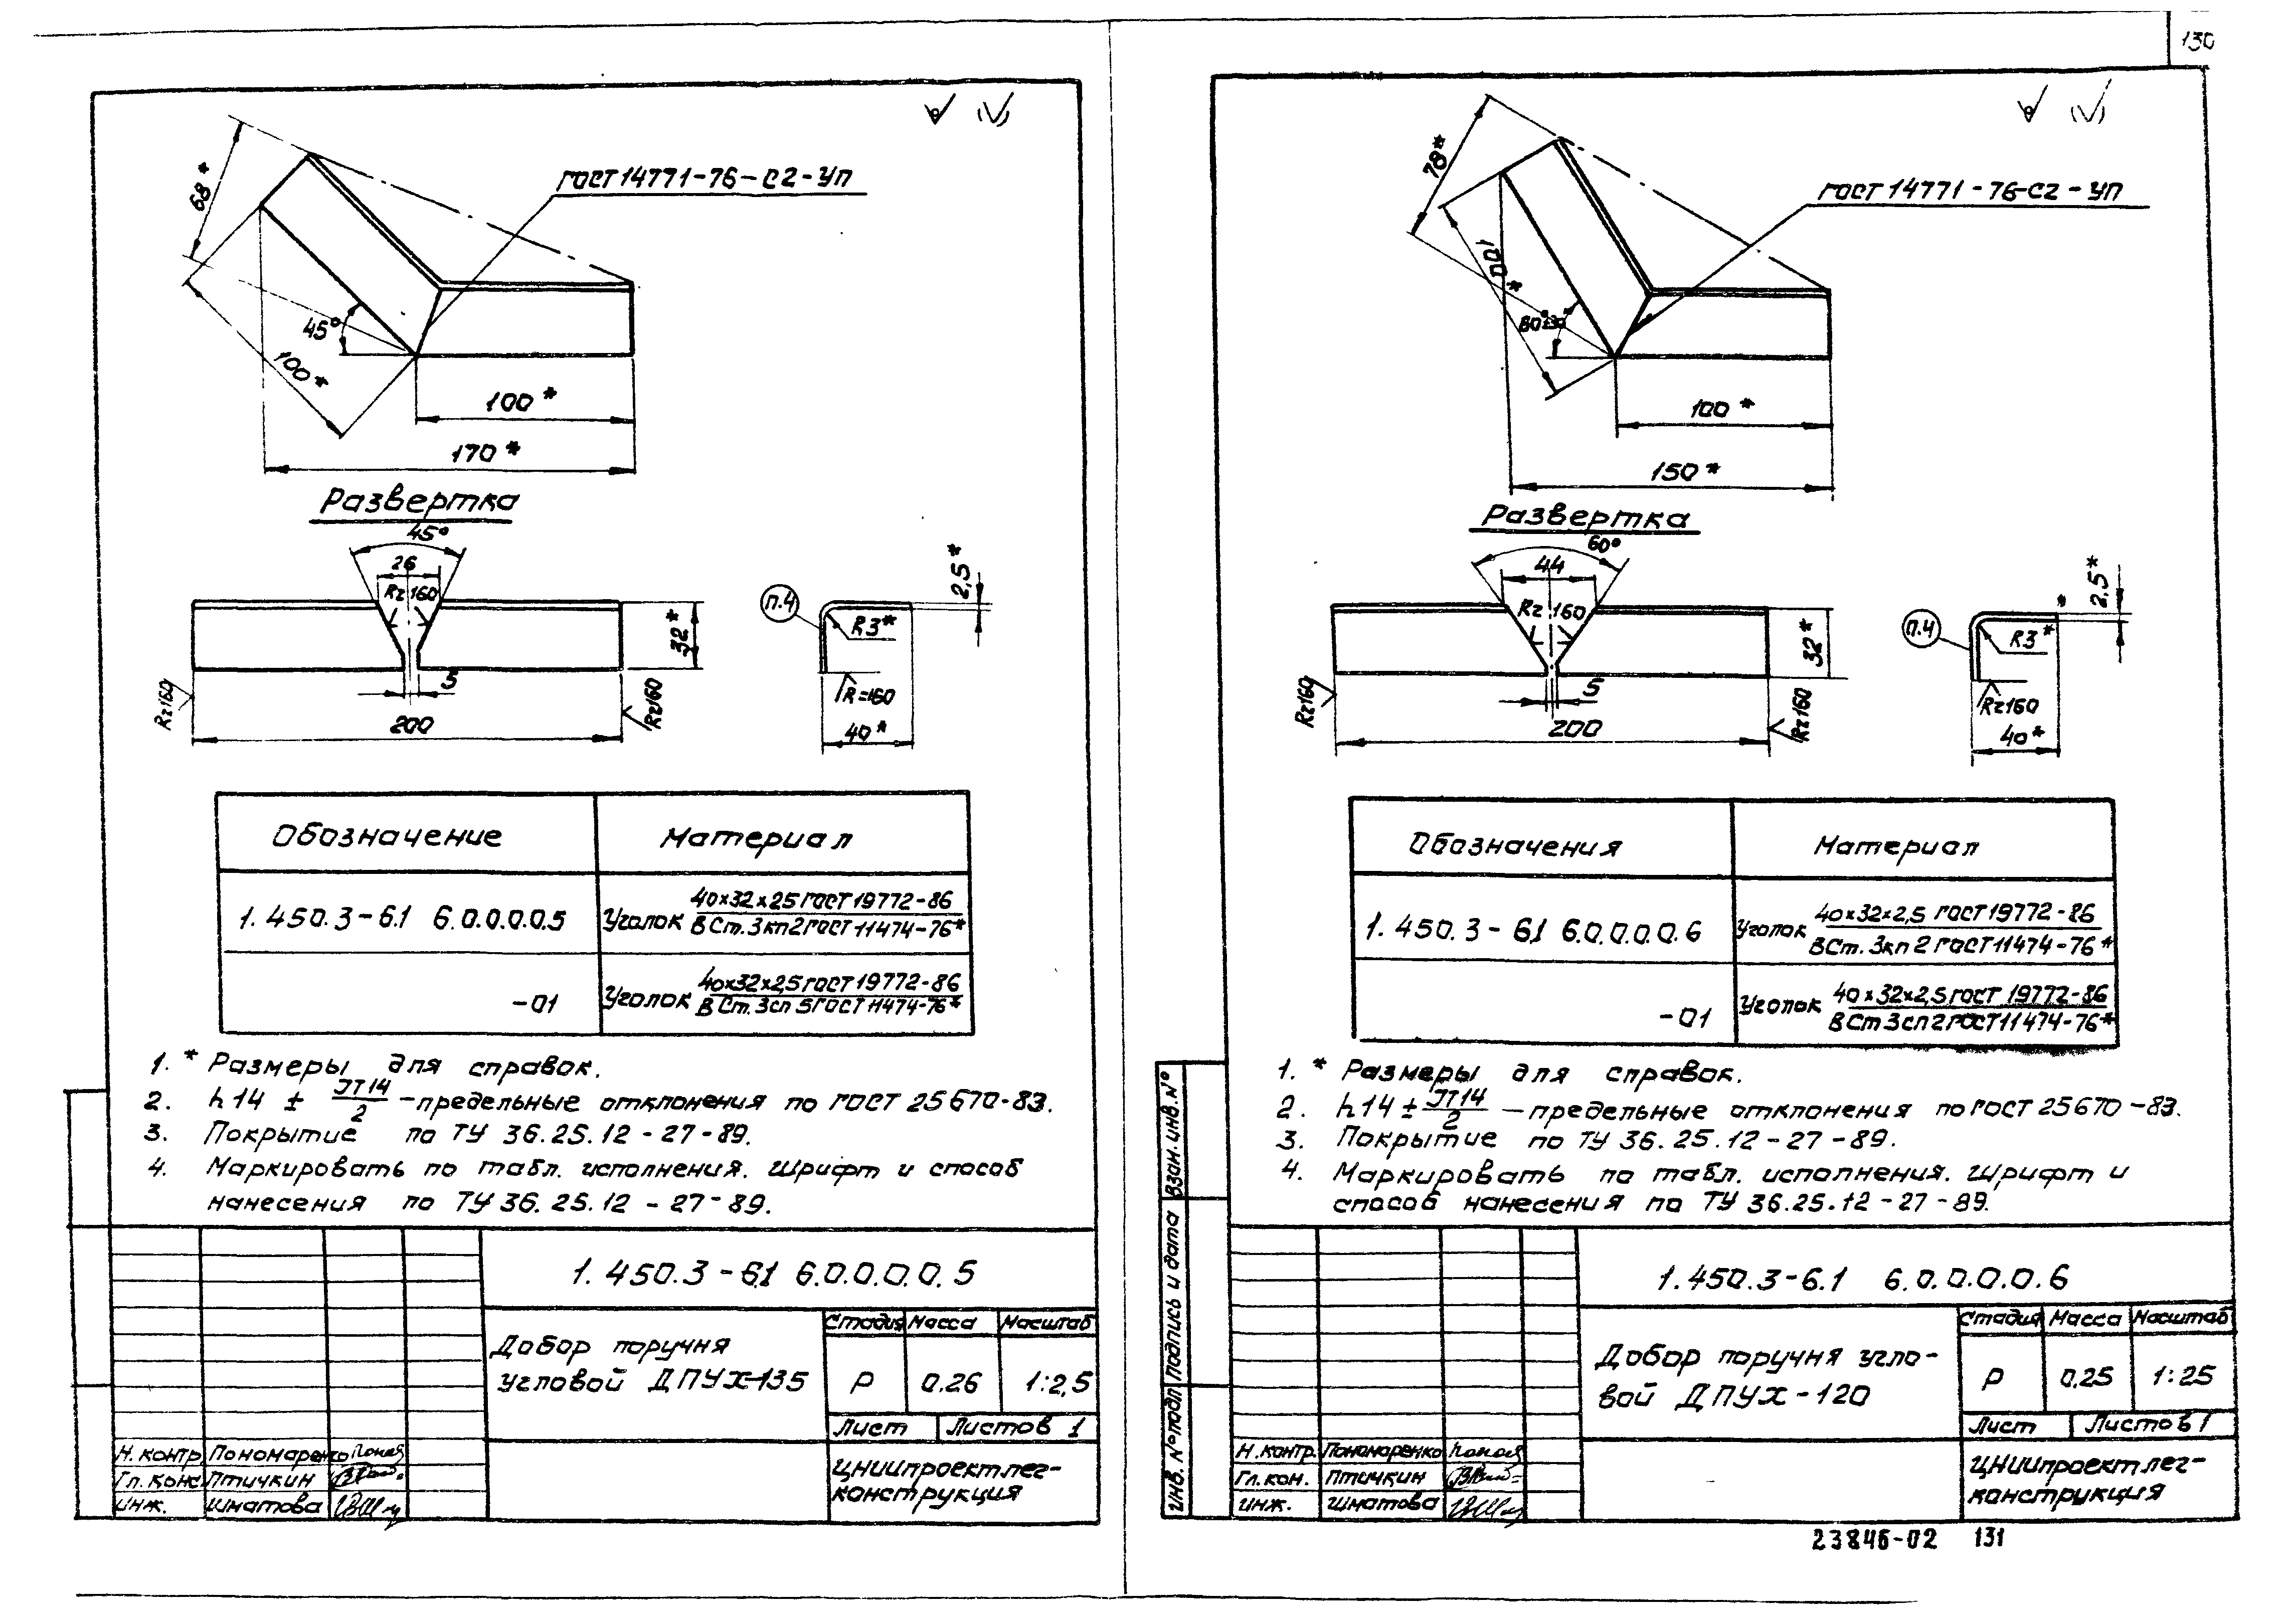 130
68*
ГОСТ 14771-76-С2-УП
45°
100*
100*
170*
Развертка
45°
26
Rz160
32*
5
Rz160
Rz160
200
п.4
2,5*
R3*
R=160
40*
Обозначение Материал
1.450.3-6.1 6.0.0.0.0.5 Уголок 40х32х25 ГОСТ 19772-86
В Ст.3кп2 ГОСТ 11474-76*
-01 Уголок 40х32х2,5 ГОСТ 19772-86
В Ст.3сп5 ГОСТ 11474-76*
1. * Размеры для справок.
2. h14 ± IT14/2 – предельные отклонения по ГОСТ 25670-83.
3. Покрытие по ТУ 36.25.12-27-89.
4. Маркировать по табл. исполнения. Шрифт и способ
нанесения по ТУ 36.25.12-27-89.
1.450.3-6.1 6.0.0.0.0.5
Добор поручня
угловой ДПУХ-135
Стадия Масса Масштаб
Р 0.26 1:2,5
Лист Листов 1
Н.контр Пономаренко
Гл.конс Птичкин
инж. Шматова
ЦНИИпроектлег-
конструкция
78*
ГОСТ 14771-76-С2-УП
100*
100*
150*
Развертка
60°
44
Rz160
32*
5
Rz160
Rz160
200
п.4
2,5*
R3*
Rz160
40*
Обозначения Материал
1.450.3-6.1 6.0.0.0.0.6 Уголок 40х32х2,5 ГОСТ 19772-86
В Ст.3кп2 ГОСТ 11474-76*
-01 Уголок 40х32х2,5 ГОСТ 19772-86
В Ст3сп2 ГОСТ 11474-76*
1. * Размеры для справок.
2. h14 ± IT14/2 – предельные отклонения по ГОСТ 25670-83.
3. Покрытие по ТУ 36.25.12-27-89.
4. Маркировать по табл. исполнения. Шрифт и
способ нанесения по ТУ 36.25.12-27-89.
Инв. № подл Подпись и дата Взам. инв. №
1.450.3-6.1 6.0.0.0.0.6
Добор поручня угло-
вой ДПУХ-120
Стадия Масса Масштаб
Р 0.25 1:25
Лист Листов 1
Н.контр. Пономаренко
Гл.кон. Птичкин
инж. Шматова
ЦНИИпроектлег-
конструкция
23846-02 131